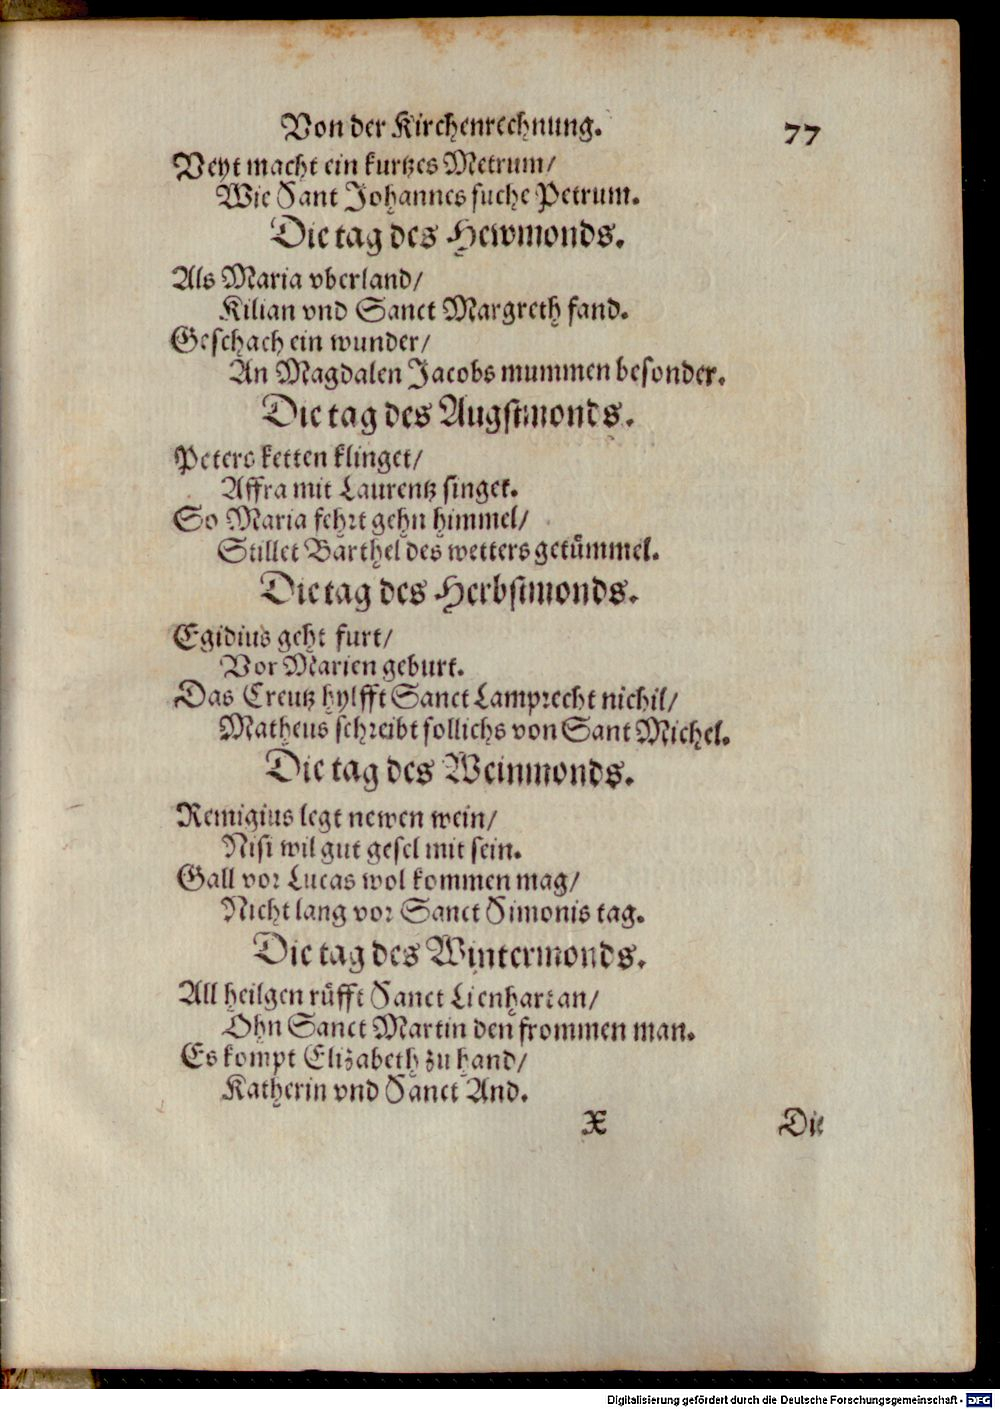 Von der Kirchenrechnung. 77
Veyt macht ein kurtzes Metrum/
Wie Sant Johannes suche Petrum.
Die tag des Hewmonds.
Als Maria vberland/
Kilian vnd Sanct Margreth fand.
Geschach ein wunder/
An Magdalen Jacobs mummen besonder.
Die tag des Augstmonds.
Peters ketten klinget/
Affra mit Laurentz singet.
So Maria fehrt gehn himmel/
Stillet Barthel des wetters getümmel.
Die tag des Herbstmonds.
Egidius geht furt/
Vor Marien geburt.
Das Creutz hylfft Sanct Lamprecht nichil/
Matheus schreibt sollichs von Sant Michel.
Die tag des Weinmonds.
Remigius legt newen wein/
Nisi wil gut gesel mit sein.
Gall vor Lucas wol kommen mag/
Nicht lang vor Sanct Simonis tag.
Die tag des Wintermonds.
All heilgen rüfft Sanct Lienhart an/
Ohn Sanct Martin den frommen man.
Es kompt Elizabeth zu hand/
Katherin vnd Sanct And.
X Die
Digitalisierung gefördert durch die Deutsche Forschungsgemeinschaft - DFG